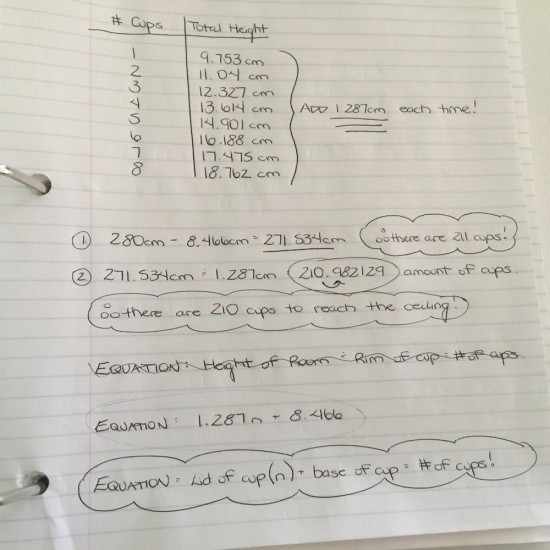 # Cups Total Height
1 9.753 cm
2 11.04 cm
3 12.327 cm
4 13.614 cm
5 14.901 cm
6 16.188 cm
7 17.475 cm
8 18.762 cm
ADD 1.287cm each time!
① 280cm - 8.466cm = 271.534cm ∴ there are 211 cups!
② 271.534cm ÷ 1.287cm (210.982129) amount of cups.
∴ there are 210 cups to reach the ceiling!
EQUATION: Height of Room ÷ Rim of cup = # of cups
EQUATION: 1.287n + 8.466
EQUATION: Lid of cup(n) + base of cup = # of cups!